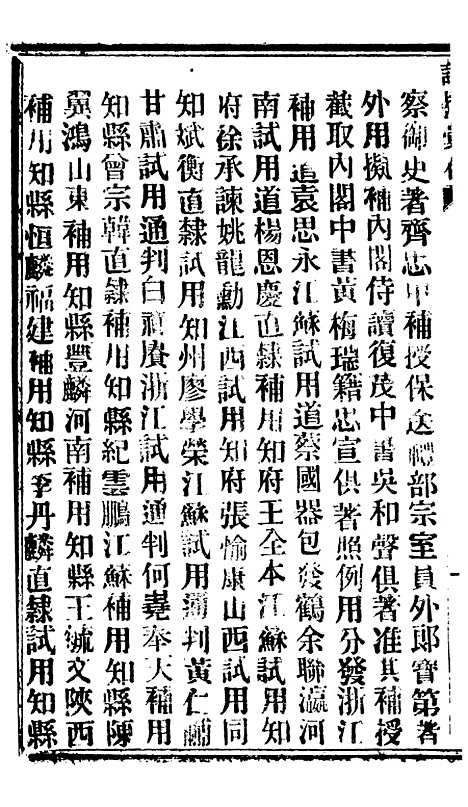 諭摺彙存
察御史著齊忠甲補授保送禮部宗室員外郎寶第著
外用擬補內閣侍讀復茂中書吳和聲俱著准其補授
截取內閣中書黃梅瑞籍忠宣俱著照例用分發浙江
補用道袁思永江蘇試用道蔡國器包發鶴余聯瀛河
南試用道楊恩慶直隸補用知府王全本江蘇試用知
府徐承諫姚龍勳江西試用知府張愉康山西試用同
知斌衡直隸試用知州廖學榮江蘇試用通判黃仁黼
甘肅試用通判白禎賡浙江試用通判何堯奉天補用
知縣曾宗韓直隸補用知縣紀雲鵬江蘇補用知縣陳
翼鴻山東補用知縣豐麟河南補用知縣王毓文陝西
補用知縣恒麟福建補用知縣李丹麟直隸試用知縣